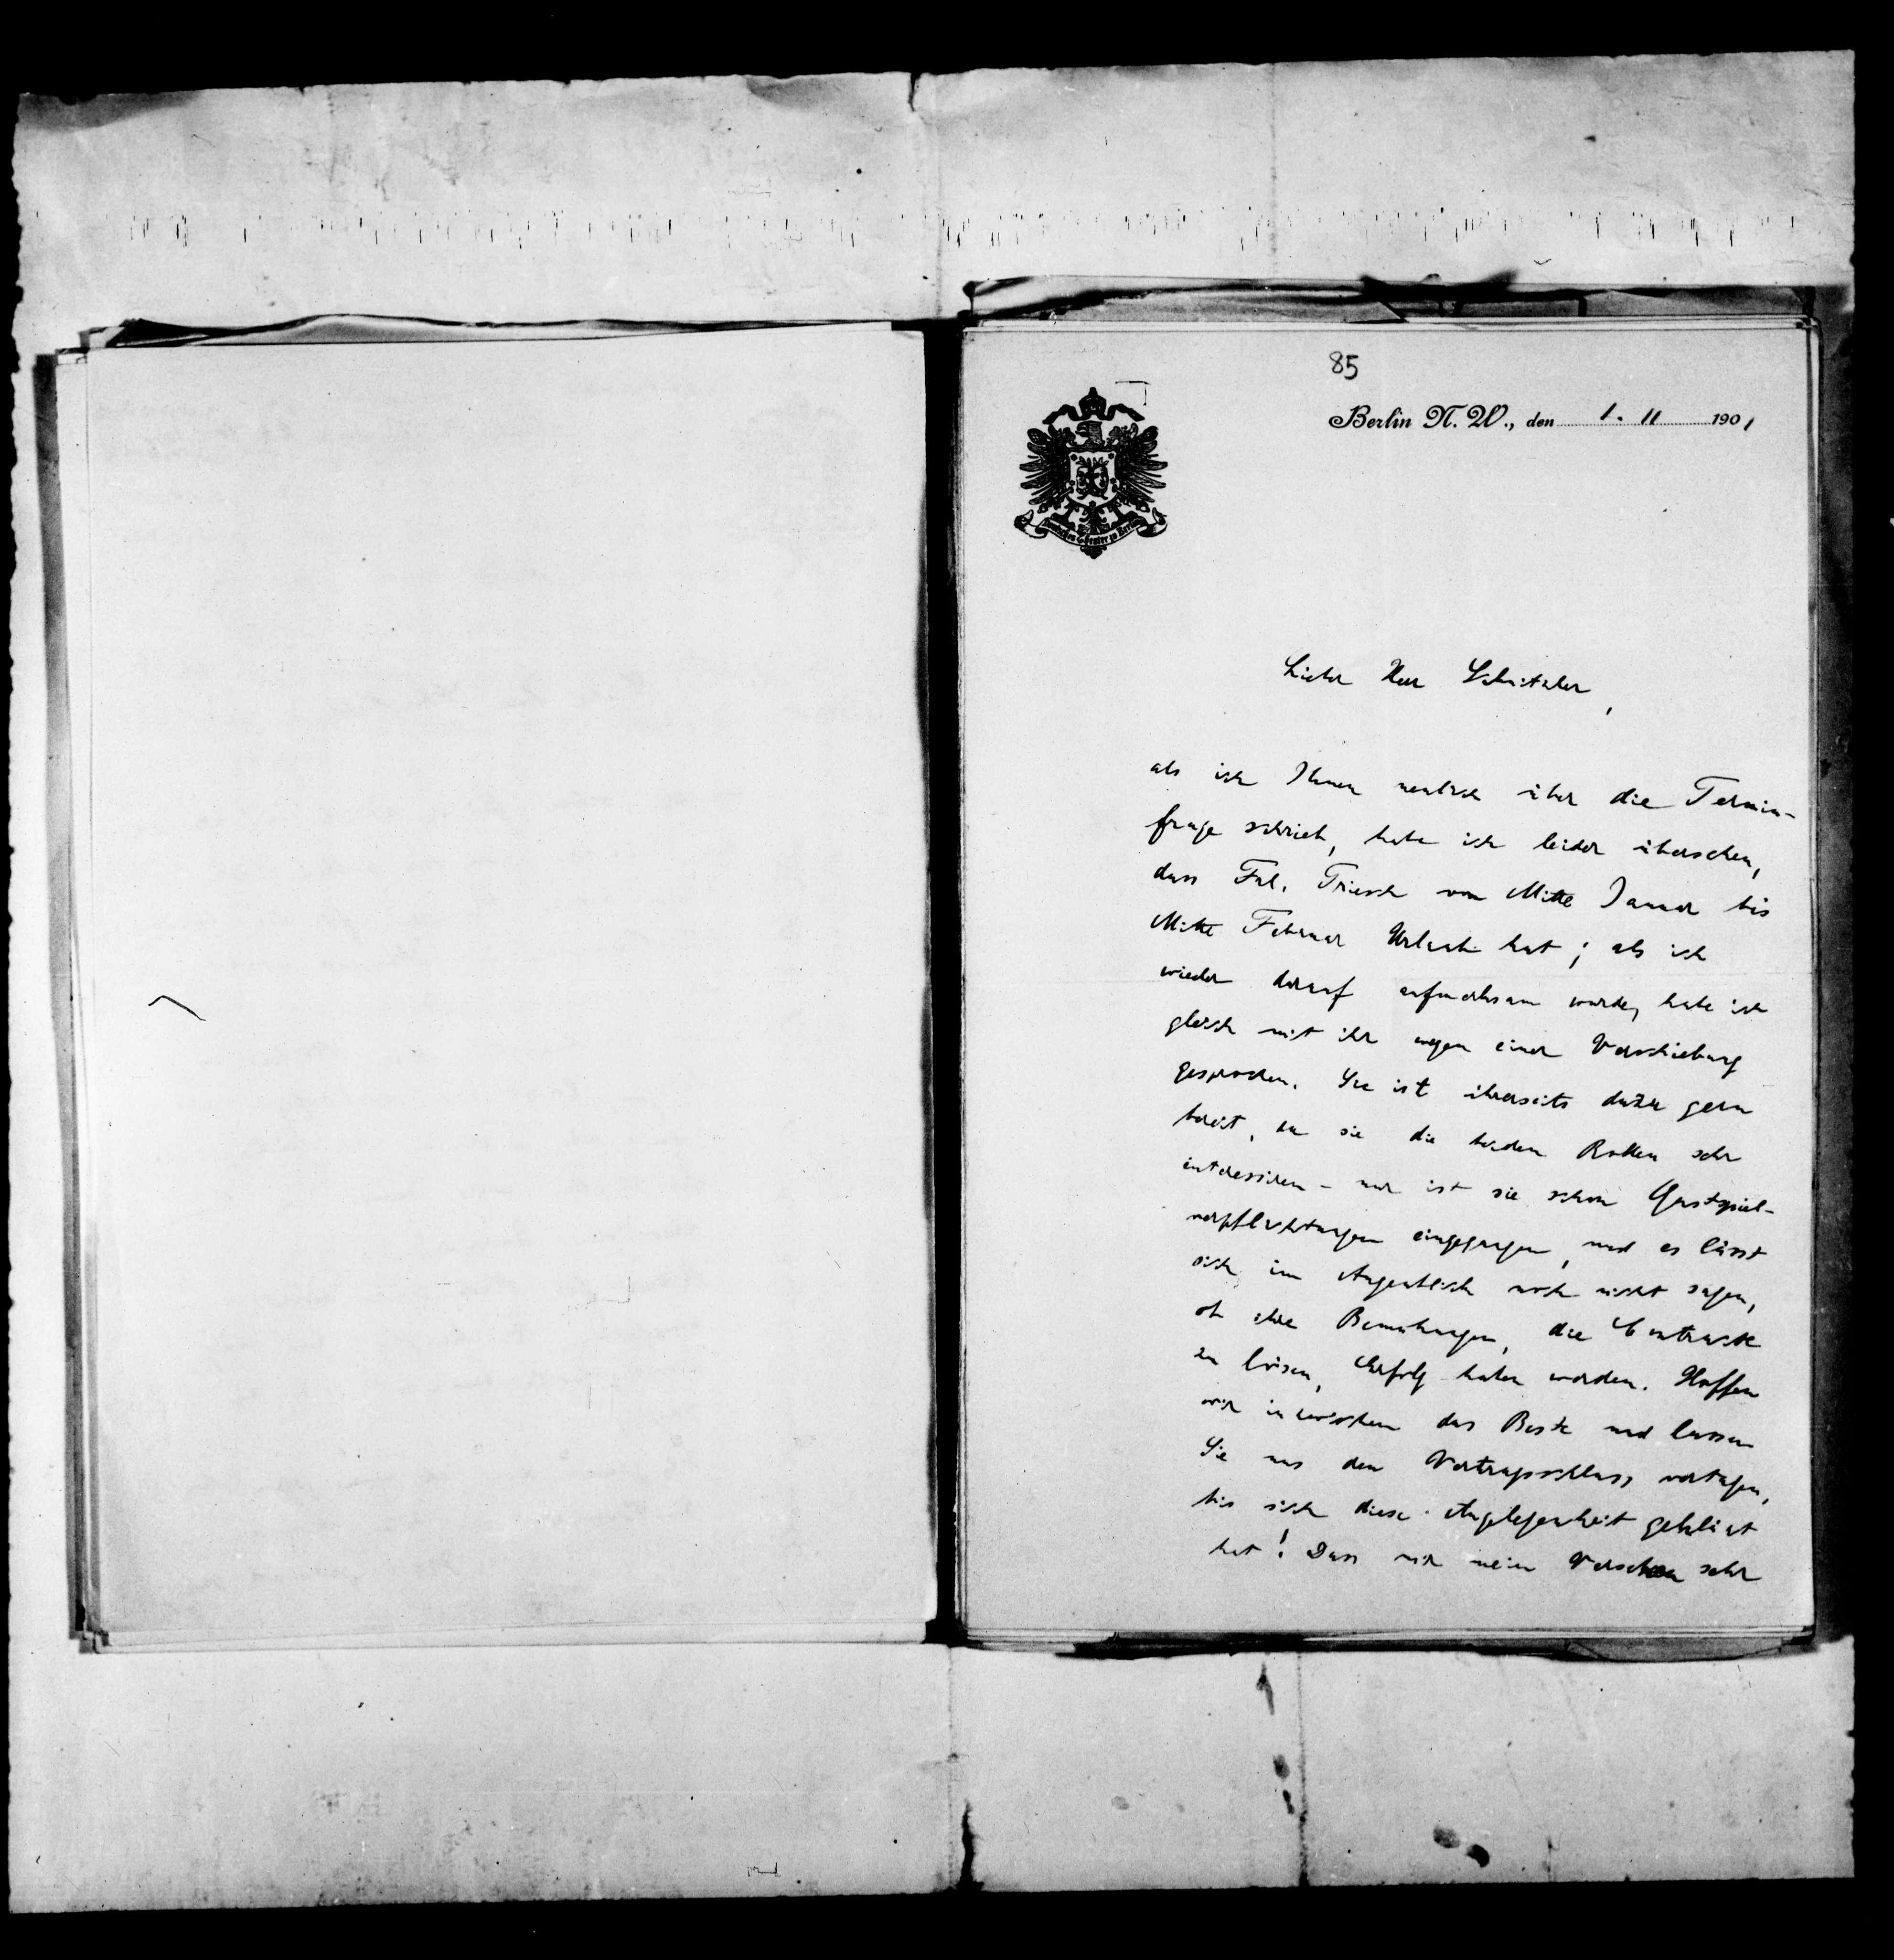 85
Berlin N. W., den 1. 11 1901
Deutsches Theater zu Berlin
Lieber Herr Schnitzler,
als ich Ihnen neulich über die Termin-
frage schrieb, habe ich leider übersehen,
dass Frl. Triesch von Mitte Januar bis
Mitte Februar Urlaub hat; als ich
wieder darauf aufmerksam wurde, habe ich
gleich mit ihr wegen einer Verschiebung
gesprochen. Sie ist ihrerseits dazu gern
bereit, da sie die beiden Rollen sehr
interessiren – nur ist sie schon Gastspiel-
verpflichtungen eingegangen, und es lässt
sich im Augenblick noch nicht sagen,
ob ihre Bemühungen, die Contracte
zu lösen, Erfolg haben werden. Hoffen
wir inzwischen das Beste und lassen
Sie uns den Vertragsschluss vertagen,
bis sich diese Angelegenheit geklärt
hat! Dass mir mein Versehen sehr